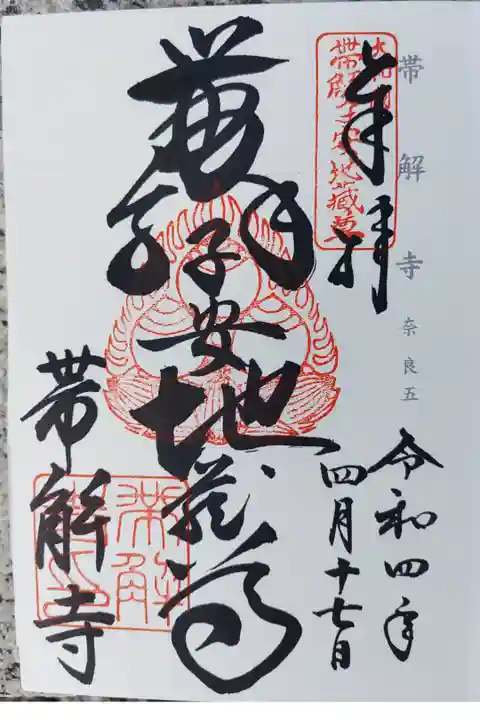 帯解寺 奈良五
奉拝
令和四年
四月十七日
帯解子安地蔵尊
帯解寺